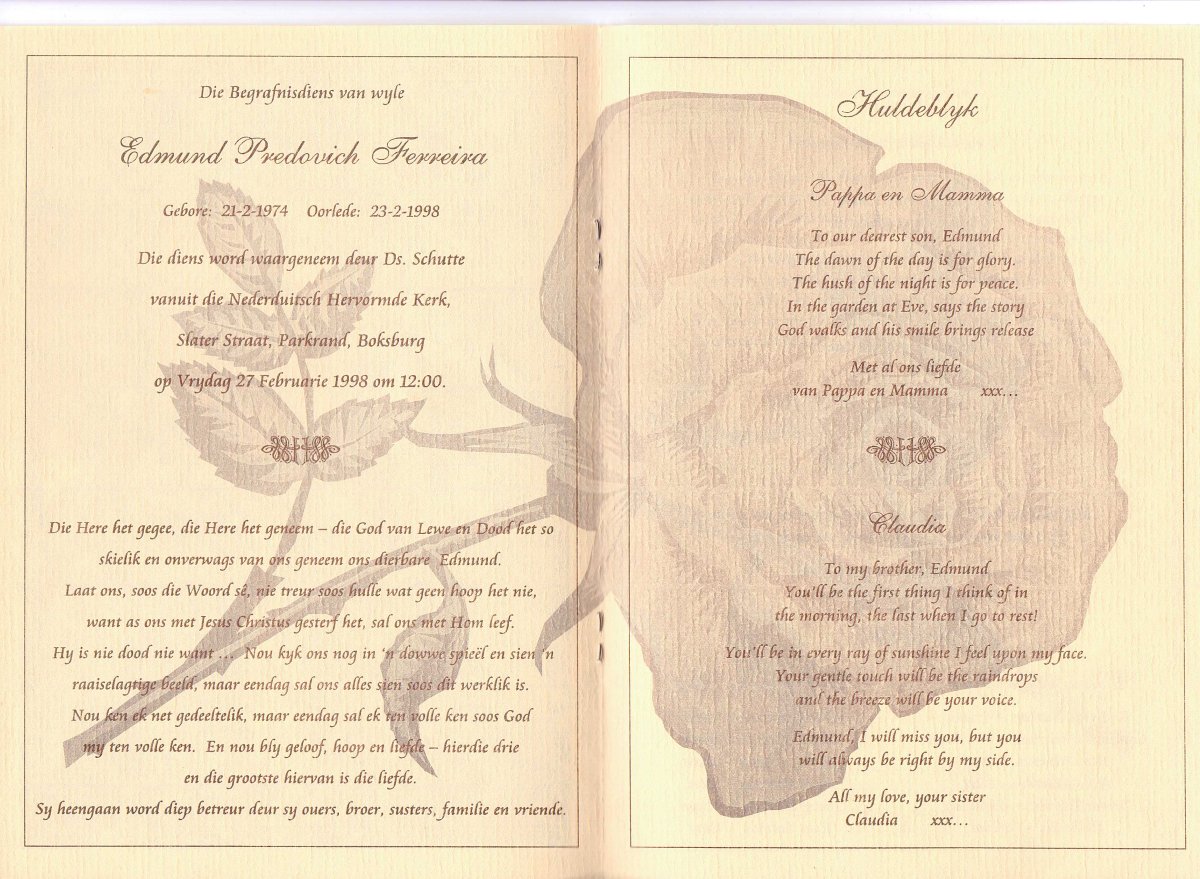 Die Begrafnisdiens van wyle
Edmund Predovich Ferreira
Gebore: 21-2-1974 Oorlede: 23-2-1998
Die diens word waargeneem deur Ds. Schutte
vanuit die Nederduitsch Hervormde Kerk,
Slater Straat, Parkrand, Boksburg
op Vrydag 27 Februarie 1998 om 12:00.
Die Here het gegee, die Here het geneem – die God van Lewe en Dood het so
skielik en onverwags van ons geneem ons dierbare Edmund.
Laat ons, soos die Woord sê, nie treur soos hulle wat geen hoop het nie,
want as ons met Jesus Christus gesterf het, sal ons met Hom leef.
Hy is nie dood nie want ... Nou kyk ons nog in 'n dowwe spieël en sien 'n
raaiselagtige beeld, maar eendag sal ons alles sien soos dit werklik is.
Nou ken ek net gedeeltelik, maar eendag sal ek ten volle ken soos God
my ten volle ken. En nou bly geloof, hoop en liefde – hierdie drie
en die grootste hiervan is die liefde.
Sy heengaan word diep betreur deur sy ouers, broer, susters, familie en vriende.
Huldeblyk
Pappa en Mamma
To our dearest son, Edmund
The dawn of the day is for glory.
The hush of the night is for peace.
In the garden at Eve, says the story
God walks and his smile brings release
Met al ons liefde
van Pappa en Mamma xxx...
Claudia
To my brother, Edmund
You'll be the first thing I think of in
the morning, the last when I go to rest!
You'll be in every ray of sunshine I feel upon my face.
Your gentle touch will be the raindrops
and the breeze will be your voice.
Edmund, I will miss you, but you
will always be right by my side.
All my love, your sister
Claudia xxx...